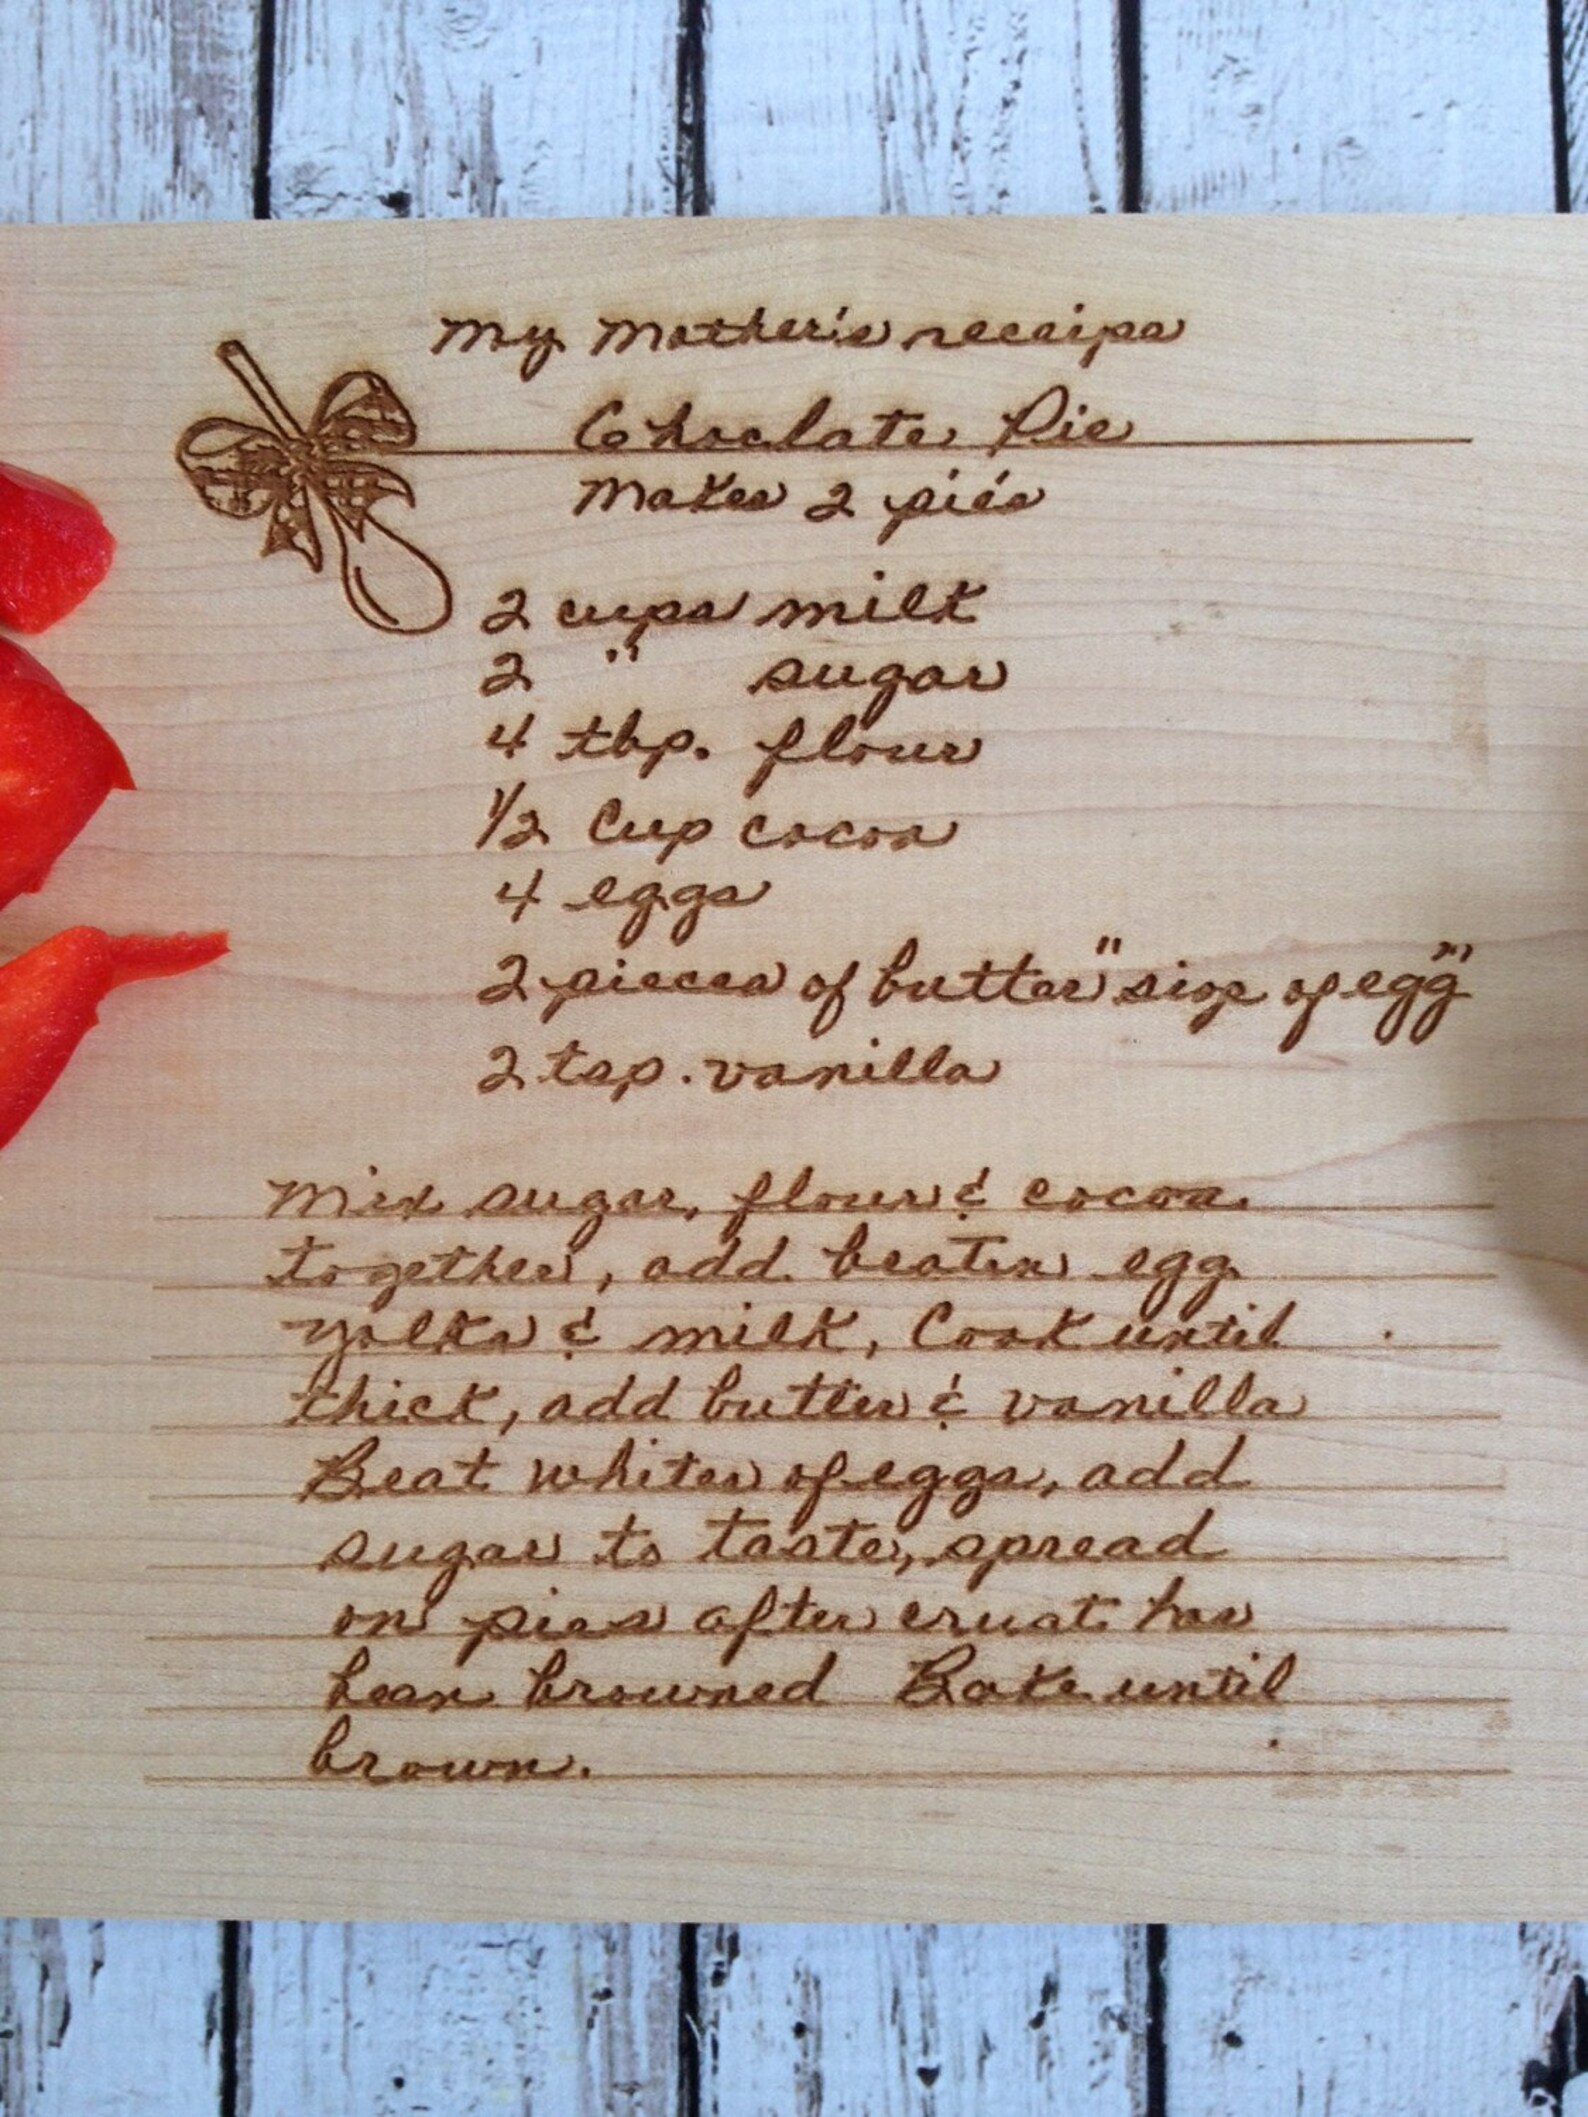 My Mother's recaipa
Choclate Pie
Makes 2 pies
2 cups milk
2 " sugar
4 tbp. flour
1/2 Cup cocoa
4 eggs
2 pieces of butter "size of egg"
2 tsp. vanilla
Mix sugar, flour & cocoa
together, add beaten egg
yolks & milk, Cook until
thick, add butter & vanilla
Beat whites of eggs, add
sugar to taste, spread
on pies after crust has
bean browned Bake until
brown.